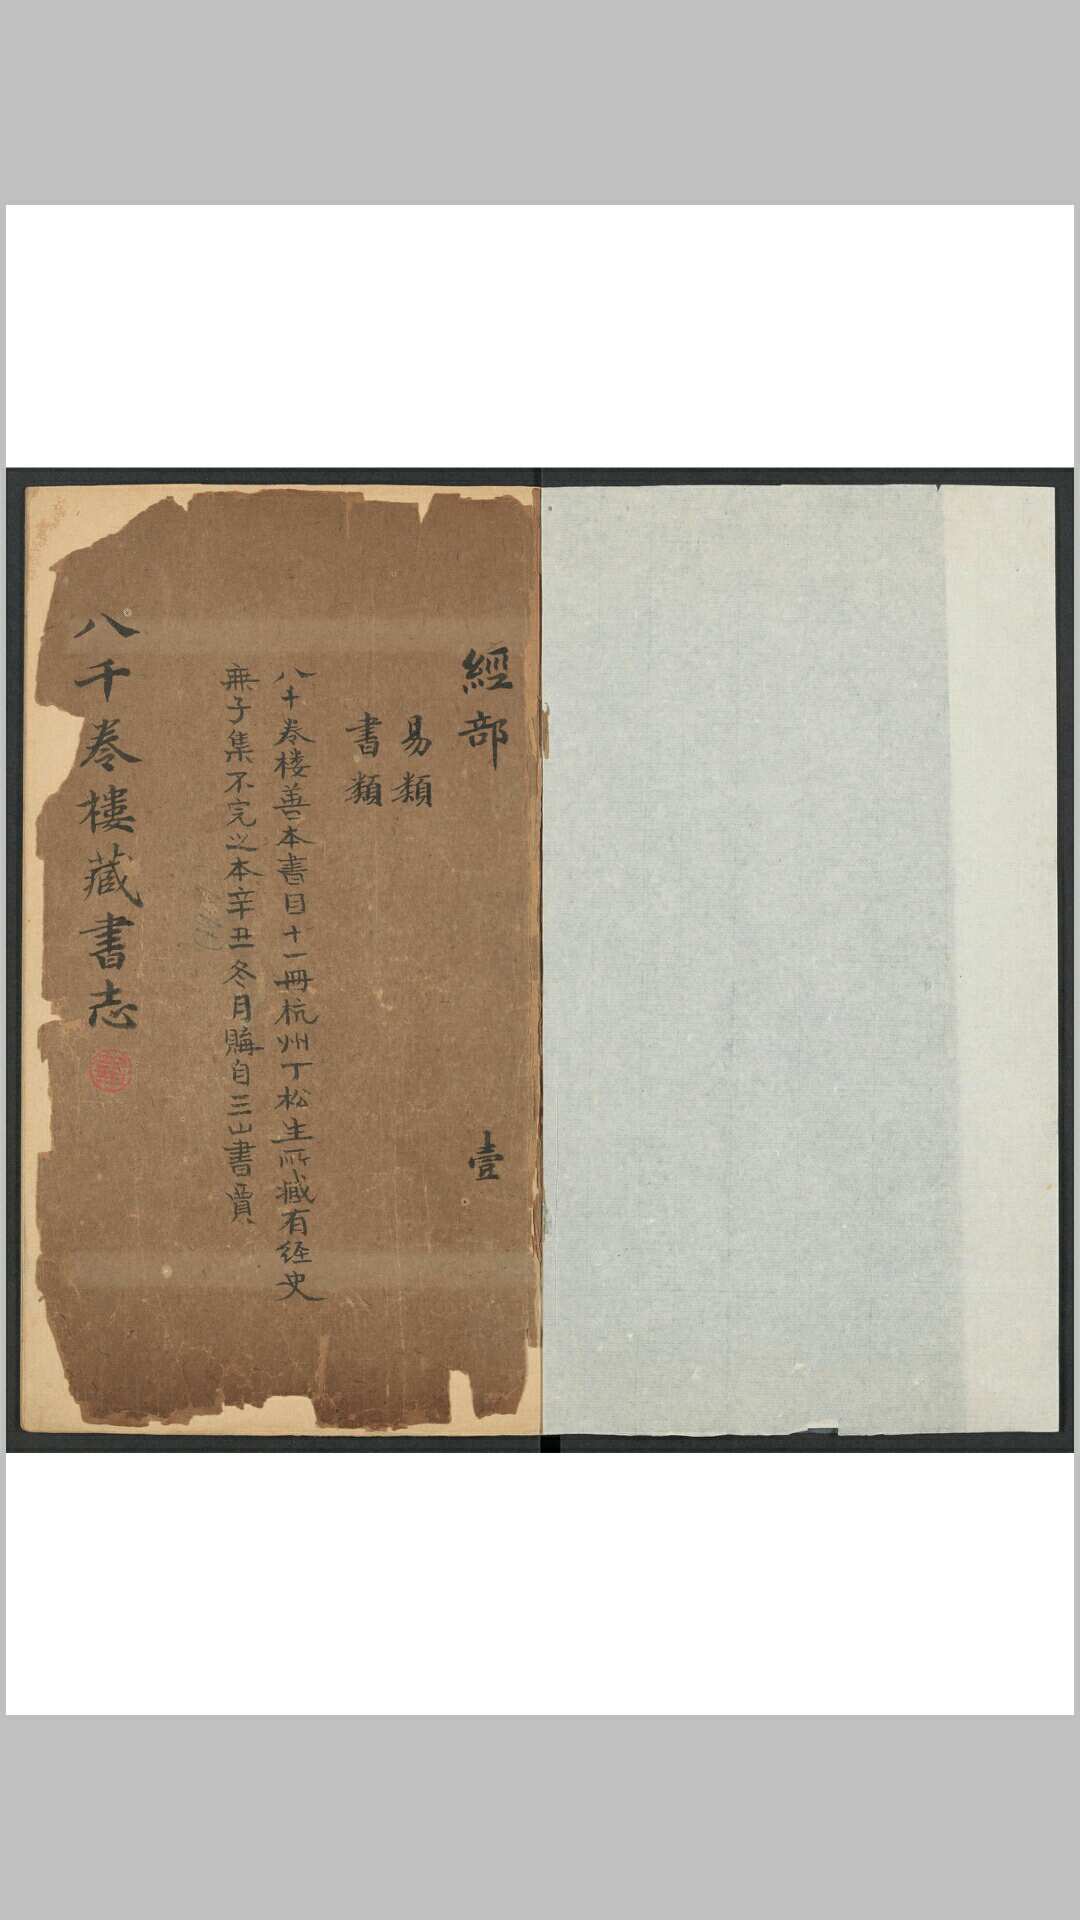 經部 壹
易類
書類
八千卷楼善本書目十一冊杭州丁松生所藏有經史
無子集不完之本辛丑冬月購自三山書賈
八千卷樓藏書志